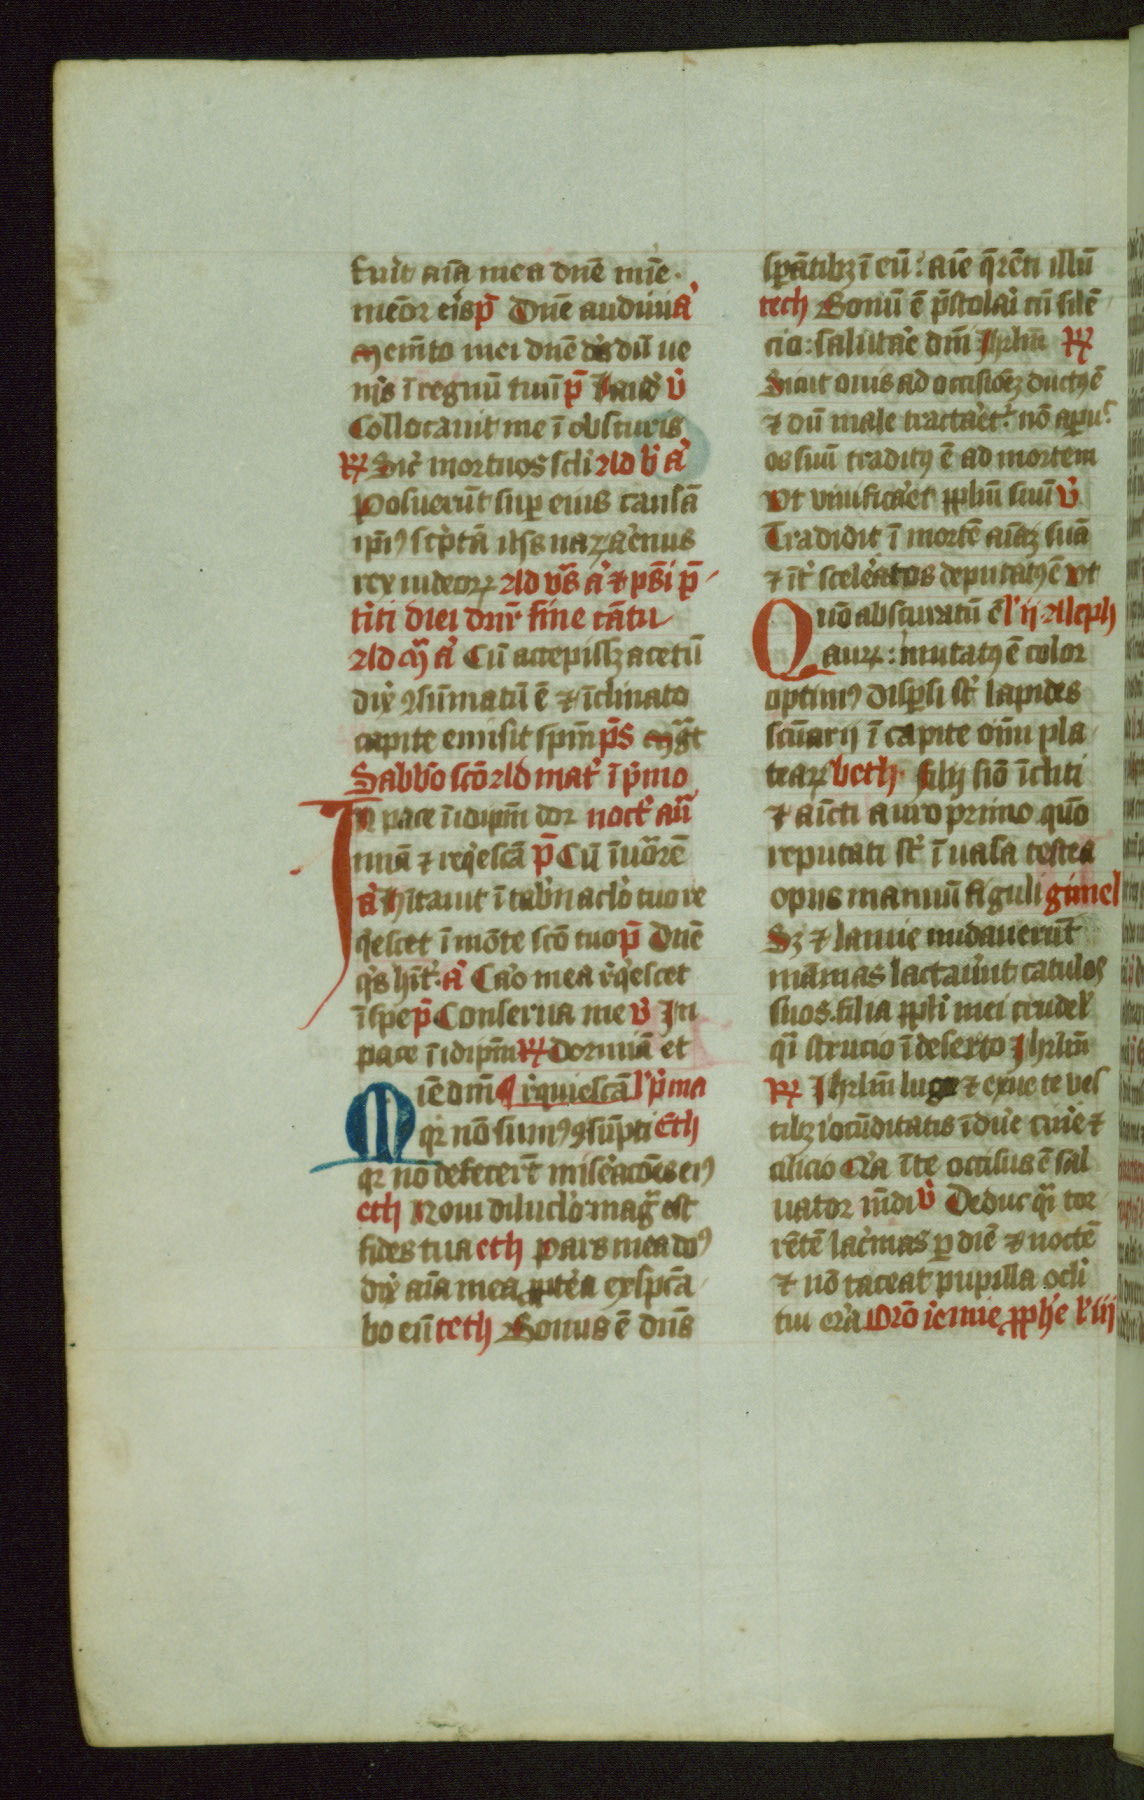 fuit aīa mea dn̄e mīe.
mem̄or eīs p̄ Dn̄e audiui a͛
Mem̄to mei dn̄e ds dū ue
nīs ī regnū tuū p̄ v̄
Collocauit me ī obscuris
R͛ Sic͛ mortuos scl̄i
Posuerūt sup eius causā
ip̄iꝰ sc͛ptā ih̄s naza͛enus
rex iudeorꝝ
Ad cȳ a͛ Cū accepissꝫ acetū
dix͛ ꝯsūmatū ē ⁊ īclinato
capite emisit spm̄ p̄s
Sabb̄o scō Ad mat͛ ī p͛mo
In pace ī idip̄m dor noct͛ an̄
miā ⁊ reqͥescā p̄ Cū īuo͛rē
a͛ Hītauit ī tab̄naclo͛ tuo re
qͥescet ī mōte scō tuo p̄ Dn̄e
qͥs hīt͛. a͛ Ca͛o mea r͛qͥescet
ī spe p̄ Conserua me v̄ In
pace ī idip̄m R͛ Dormiā et
Mīe dn̄i r͛quiescā l͛ p͛ma
qr nō sumꝰ ꝯsūpti Eth
qr nō defecer̄t mise͛acōes eiꝰ
eth Noui diluclo͛ mag͛ est
fides tua eth Pars mea dn̄ꝰ
dix͛ aīa mea ꝓpte͛a exspc̄ta
bo eū teth Bonus ē dn̄s
sp̄atibꝫ ī eū: aīe q̄renti illū
tech Bonū ē p̄stolai͛ cū silē
cio: saluta͛e dn̄i Irlm̄ R͛
Sicut ouis ad occisiōeꝫ ductꝰ ē
⁊ dū male tractaet͛: nō apu͛
os suū traditꝰ ē ad mortem
Vt uiuifica͛et ppl̄m suū v̄
Tradidit ī mortē aīaꝫ suā
⁊ īt͛ scele͛atos deputatꝰ ē Vt
Quō obscuratū ē l͛ ij Aleph
aurꝝ: mutatꝰ ē color
optimꝰ disp̄si st͛ lapides
scūarij ī capite oīm pla
tearꝝ beth. filij siō īcliti
⁊ aīcti auro primo quō
reputati st͛ ī uasa testea
opus manuū figuli gimel
Sꝫ ⁊ lamie nudauerūt
mamas lactau͛nt catulos
suos. filia ppl̄i mei crudel͛
qͣi strucio ī deserto Ihrlm̄
R͛ Ihrlm̄ luge ⁊ exue te ves
tibꝫ iocūditatis īdue cine͛ ⁊
cilicio Q͛a ī te occisus ē sal
uator mūdi v̄ Deduc qͣi tor
rētē lac͛mas p diē ⁊ noctē
⁊ nō taceat pupilla ocli
tui Or͛o ie͛mie ꝓphe͛ l͛ iij